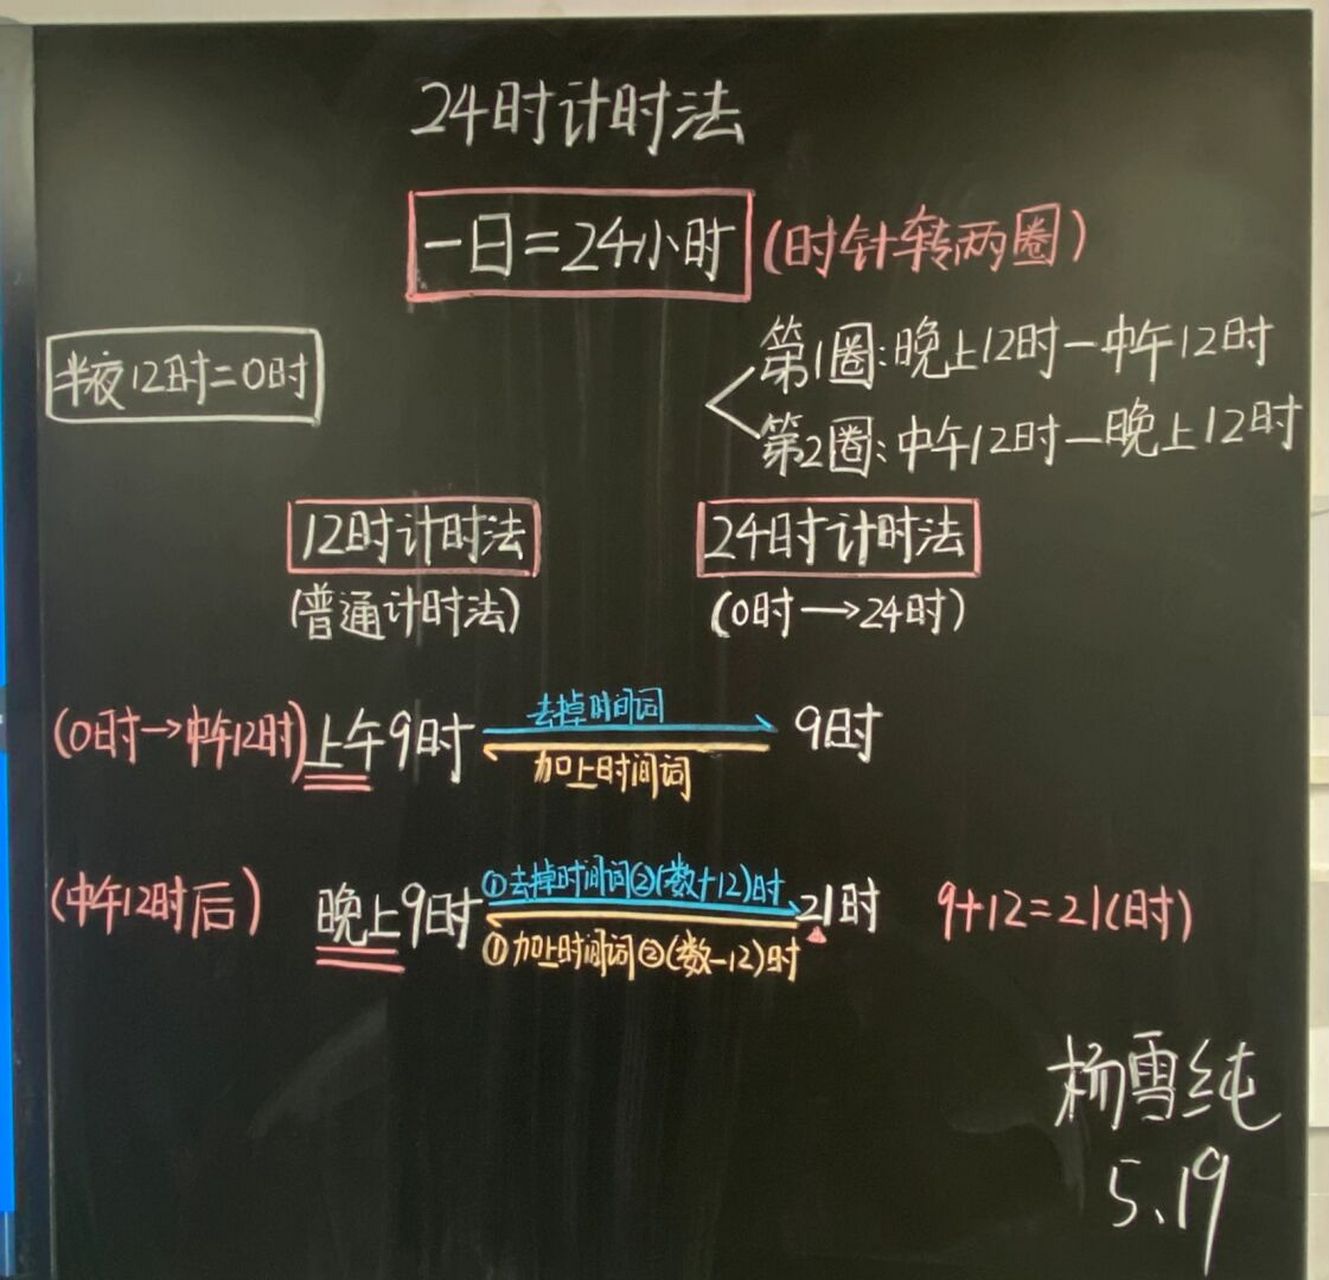 24时计时法
一日=24小时 (时针转两圈)
第1圈:晚上12时—中午12时
半夜12时=0时
第2圈:中午12时—晚上12时
12时计时法 24时计时法
(普通计时法) (0时→24时)
去掉时间词
(0时→中午12时)上午9时 9时
加上时间词
①去掉时间词②(数+12)时
(中午12时后) 晚上9时 21时 9+12=21(时)
①加上时间词②(数-12)时
杨雪纯
5.19